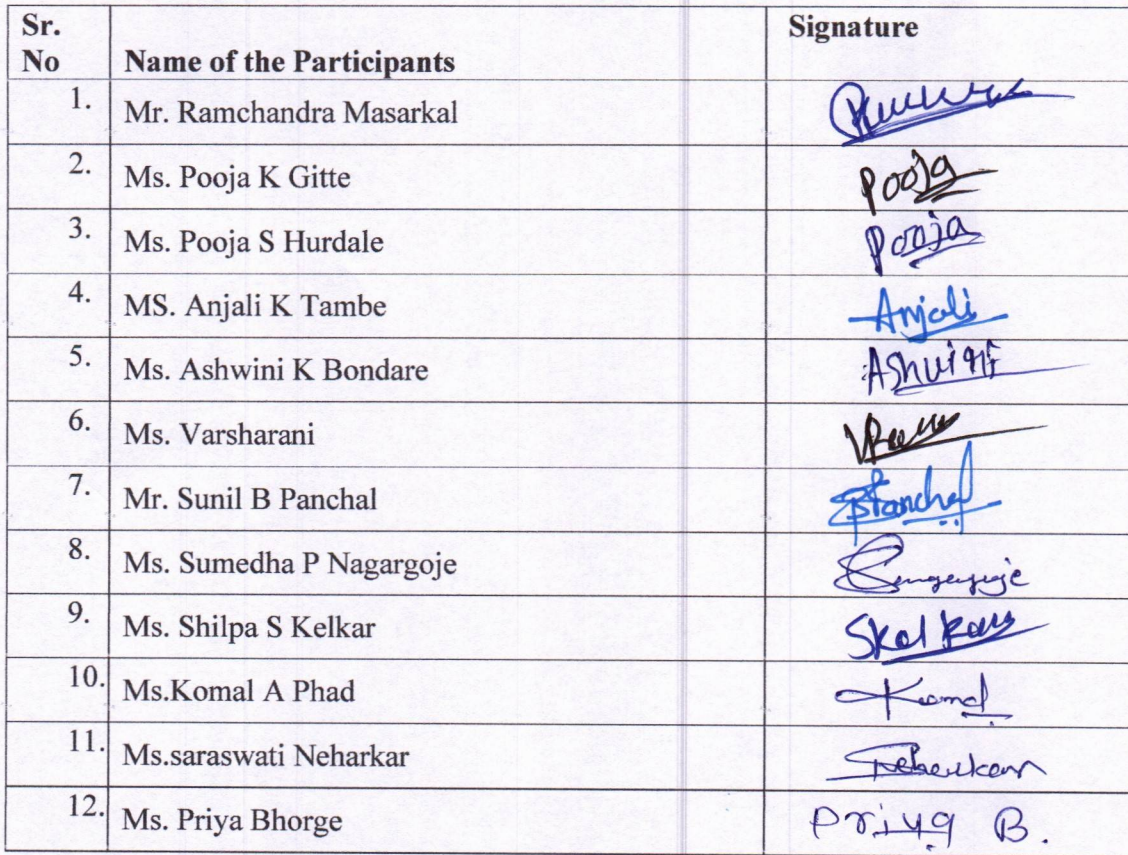 Sr. No Name of the Participants Signature
1. Mr. Ramchandra Masarkal
2. Ms. Pooja K Gitte Pooja
3. Ms. Pooja S Hurdale Pooja
4. MS. Anjali K Tambe Anjali
5. Ms. Ashwini K Bondare
6. Ms. Varsharani
7. Mr. Sunil B Panchal
8. Ms. Sumedha P Nagargoje
9. Ms. Shilpa S Kelkar
10. Ms.Komal A Phad Komal
11. Ms.saraswati Neharkar
12. Ms. Priya Bhorge Priya B.